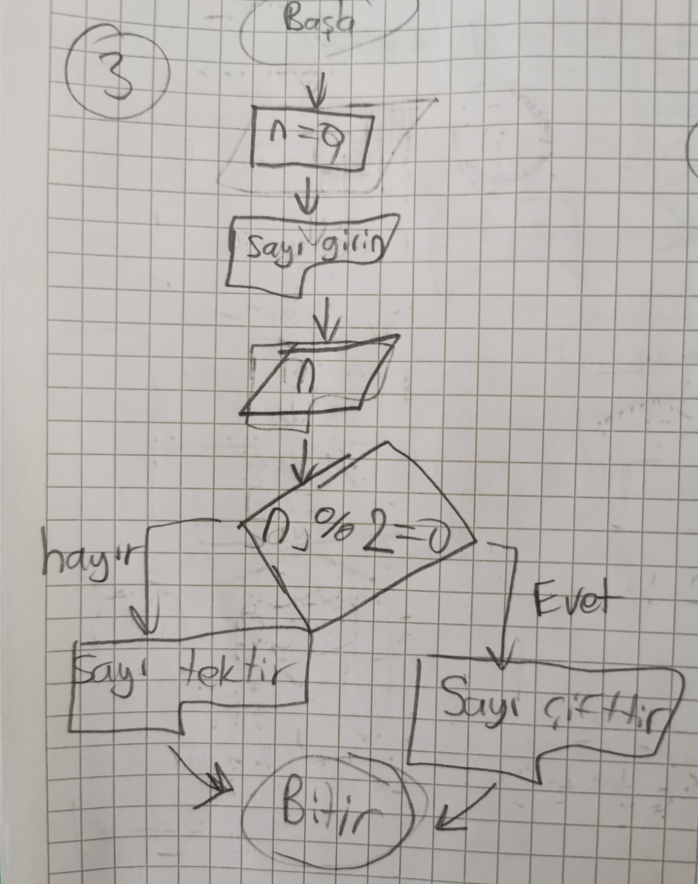 Başla
3
n=0
Sayı girin
n
n % 2=0
hayır
Evet
Sayı tektir
Sayı çifttir
Bitir